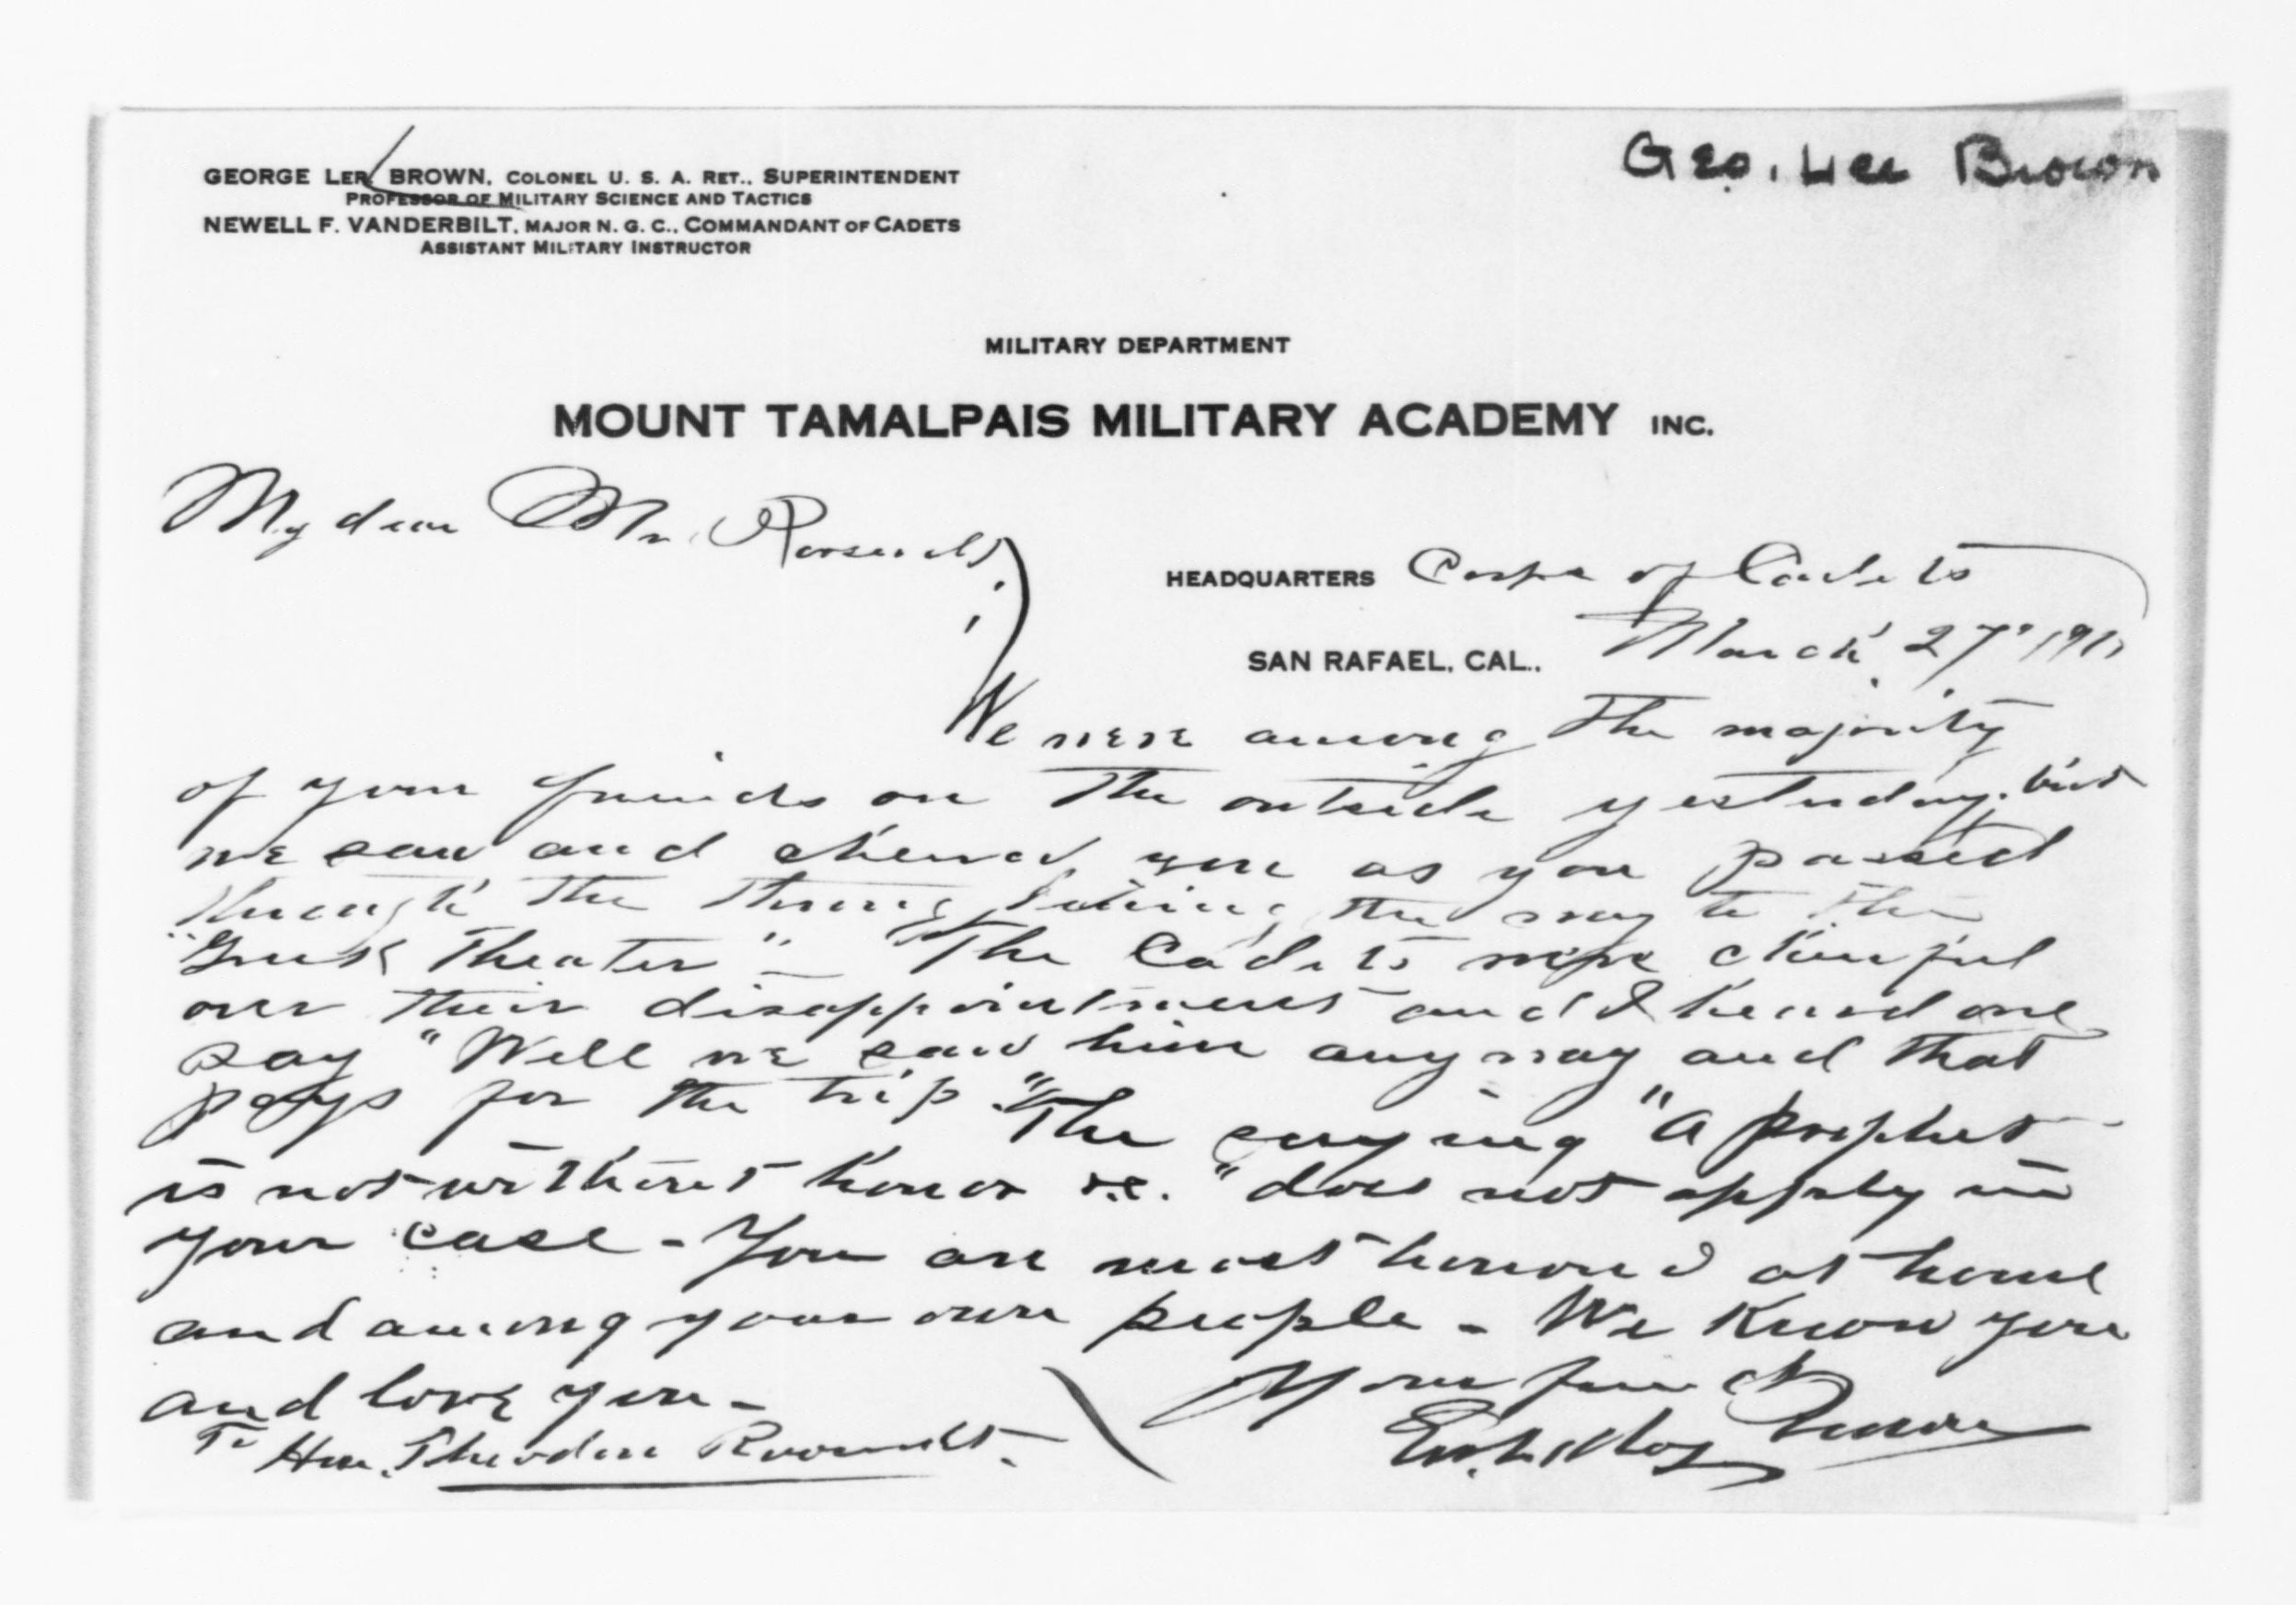 Geo. Lee Brown
GEORGE LER BROWN, COLONEL U. S. A. RET., SUPERINTENDENT
PROFESSOR OF MILITARY SCIENCE AND TACTICS
NEWELL F. VANDERBILT, MAJOR N. G. C., COMMANDANT OF CADETS
ASSISTANT MILITARY INSTRUCTOR
MILITARY DEPARTMENT
MOUNT TAMALPAIS MILITARY ACADEMY INC.
My dear Mr. Roosevelt;
HEADQUARTERS Corps of Cadets
SAN RAFAEL, CAL., March 27" 1911
We were among the majority
of your friends on the outside yesterday, but
we saw and cheered you as you passed
through the throng lining the way to the
"Greek Theater" – The Cadets were cheerful
over their disappointment and I heard one
say "Well we saw him any way and that
pays for the trip." The saying "A prophet
is not without honor &c." does not apply in
your case - You are most honored at home
and among your own people - We Know you
and love you -
Your friend
Brown
To Hon. Theodore Roosevelt.